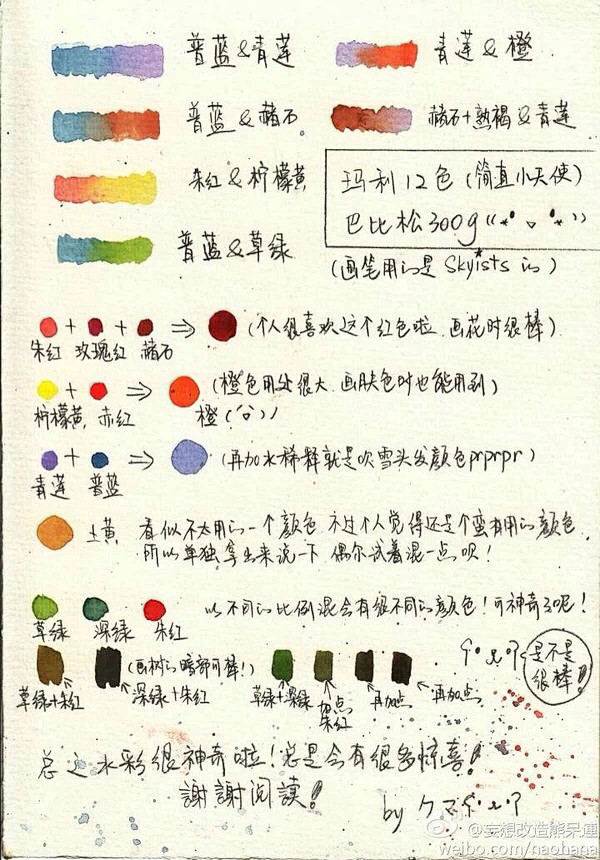 普蓝&青莲
青莲&橙
普蓝&赭石
赭石+熟褐&青莲
朱红&柠檬黄
普蓝&草绿
玛利12色(简直小天使)
巴比松300g
(画笔用的是 Skyists 的)
+ + ⇒ (个人很喜欢这个红色啦 画花时很棒)
朱红 玫瑰红 赭石
+ ⇒ (橙色用处很大 画肤色时也能用到)
柠檬黄 赤红 橙
+ ⇒ (再加水稀释就是吹雪头发颜色prprpr)
青莲 普蓝
土黄 看似不太用的一个颜色 不过个人觉得还是个蛮有用的颜色
所以单独拿出来说一下 偶尔试着混一点呗!
以不同的比例混会有很不同的颜色!可神奇了呢!
草绿 深绿 朱红
(画树的暗部可棒!)
草绿+朱红
深绿+朱红
草绿+深绿
加点朱红
再加点
再加点
是不是
很棒!!
总之水彩很神奇啦!总是会有很多惊喜!
謝謝阅讀!
by クマ
@妄想改造熊呆連
weibo.com/naohana